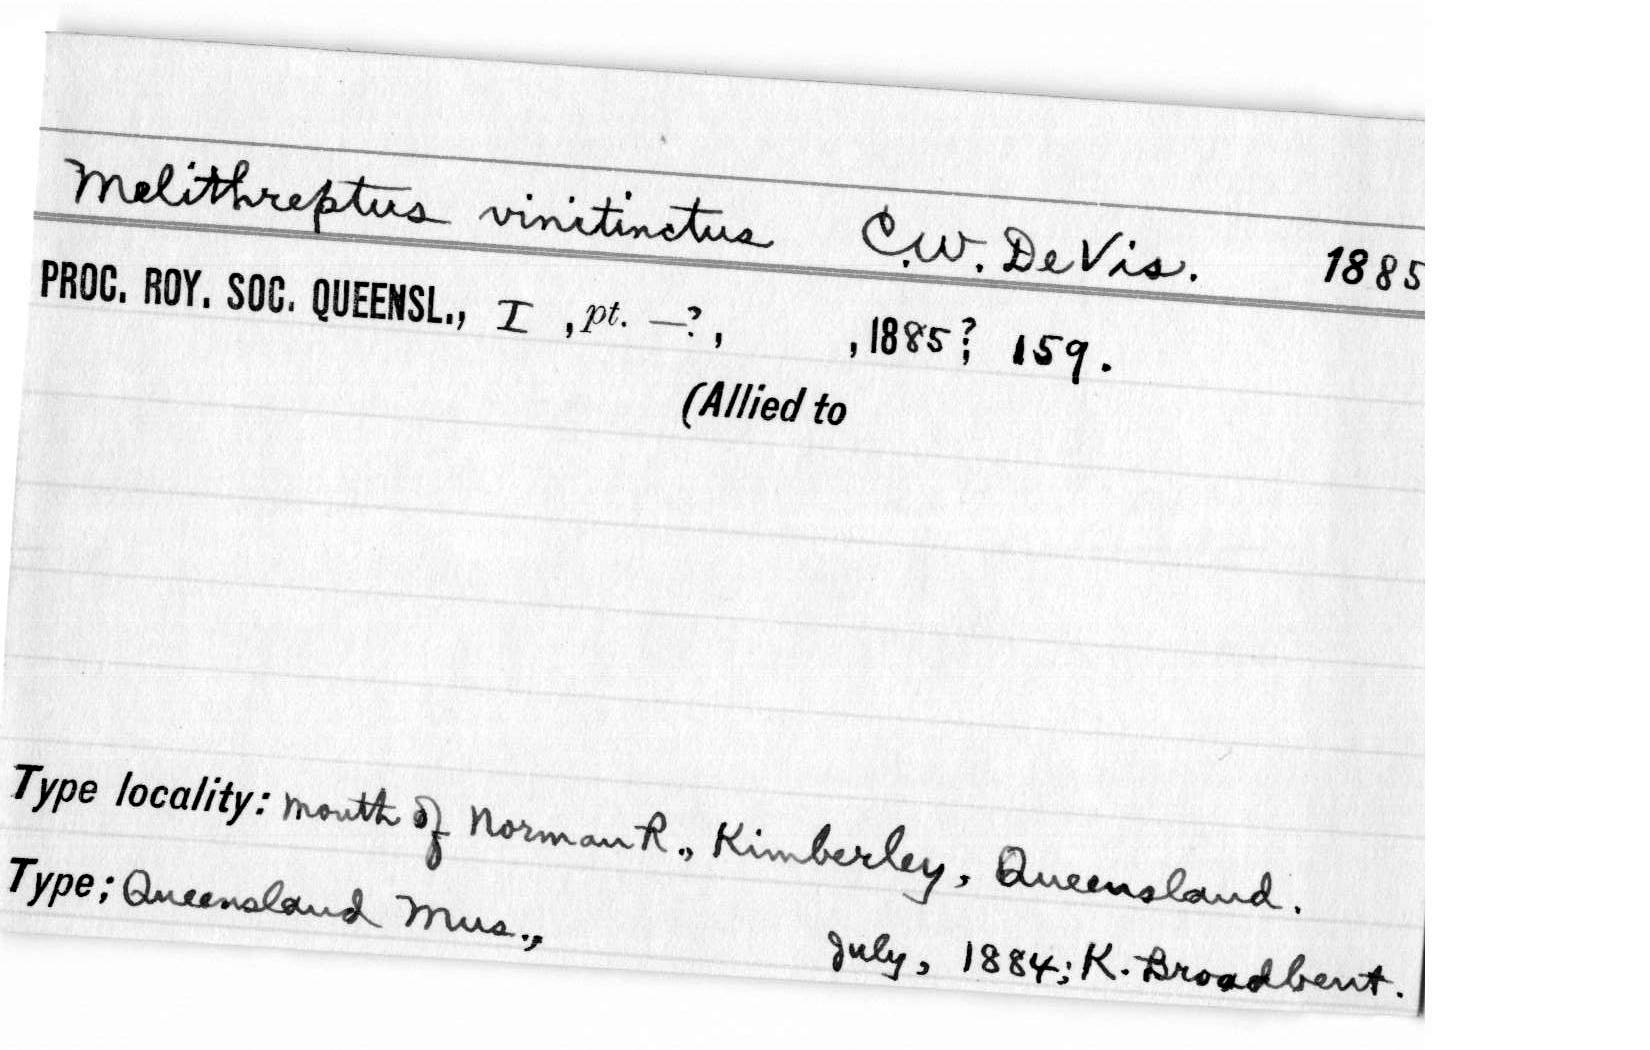 Melithreptus vinitinctus C.W. DeVis. 1885
PROC. ROY. SOC. QUEENSL., I , pt. —?, , 1885?; 159.
(Allied to
Type locality: mouth of Norman R., Kimberley, Queensland.
Type; Queensland Mus., July, 1884; K. Broadbent.